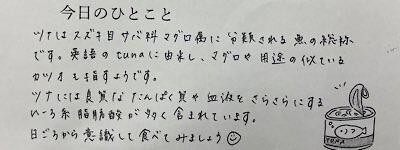 今日のひとこと
ツナはスズキ目サバ科マグロ属に分類される魚の総称
です。英語のtunaに由来し、マグロや用途の似ている
カツオも指すようです。
ツナには良質なたんぱく質や血液をさらさらにする
いろ系脂肪酸が多く含まれています。
日ごろから意識して食べてみましょう
TUNA